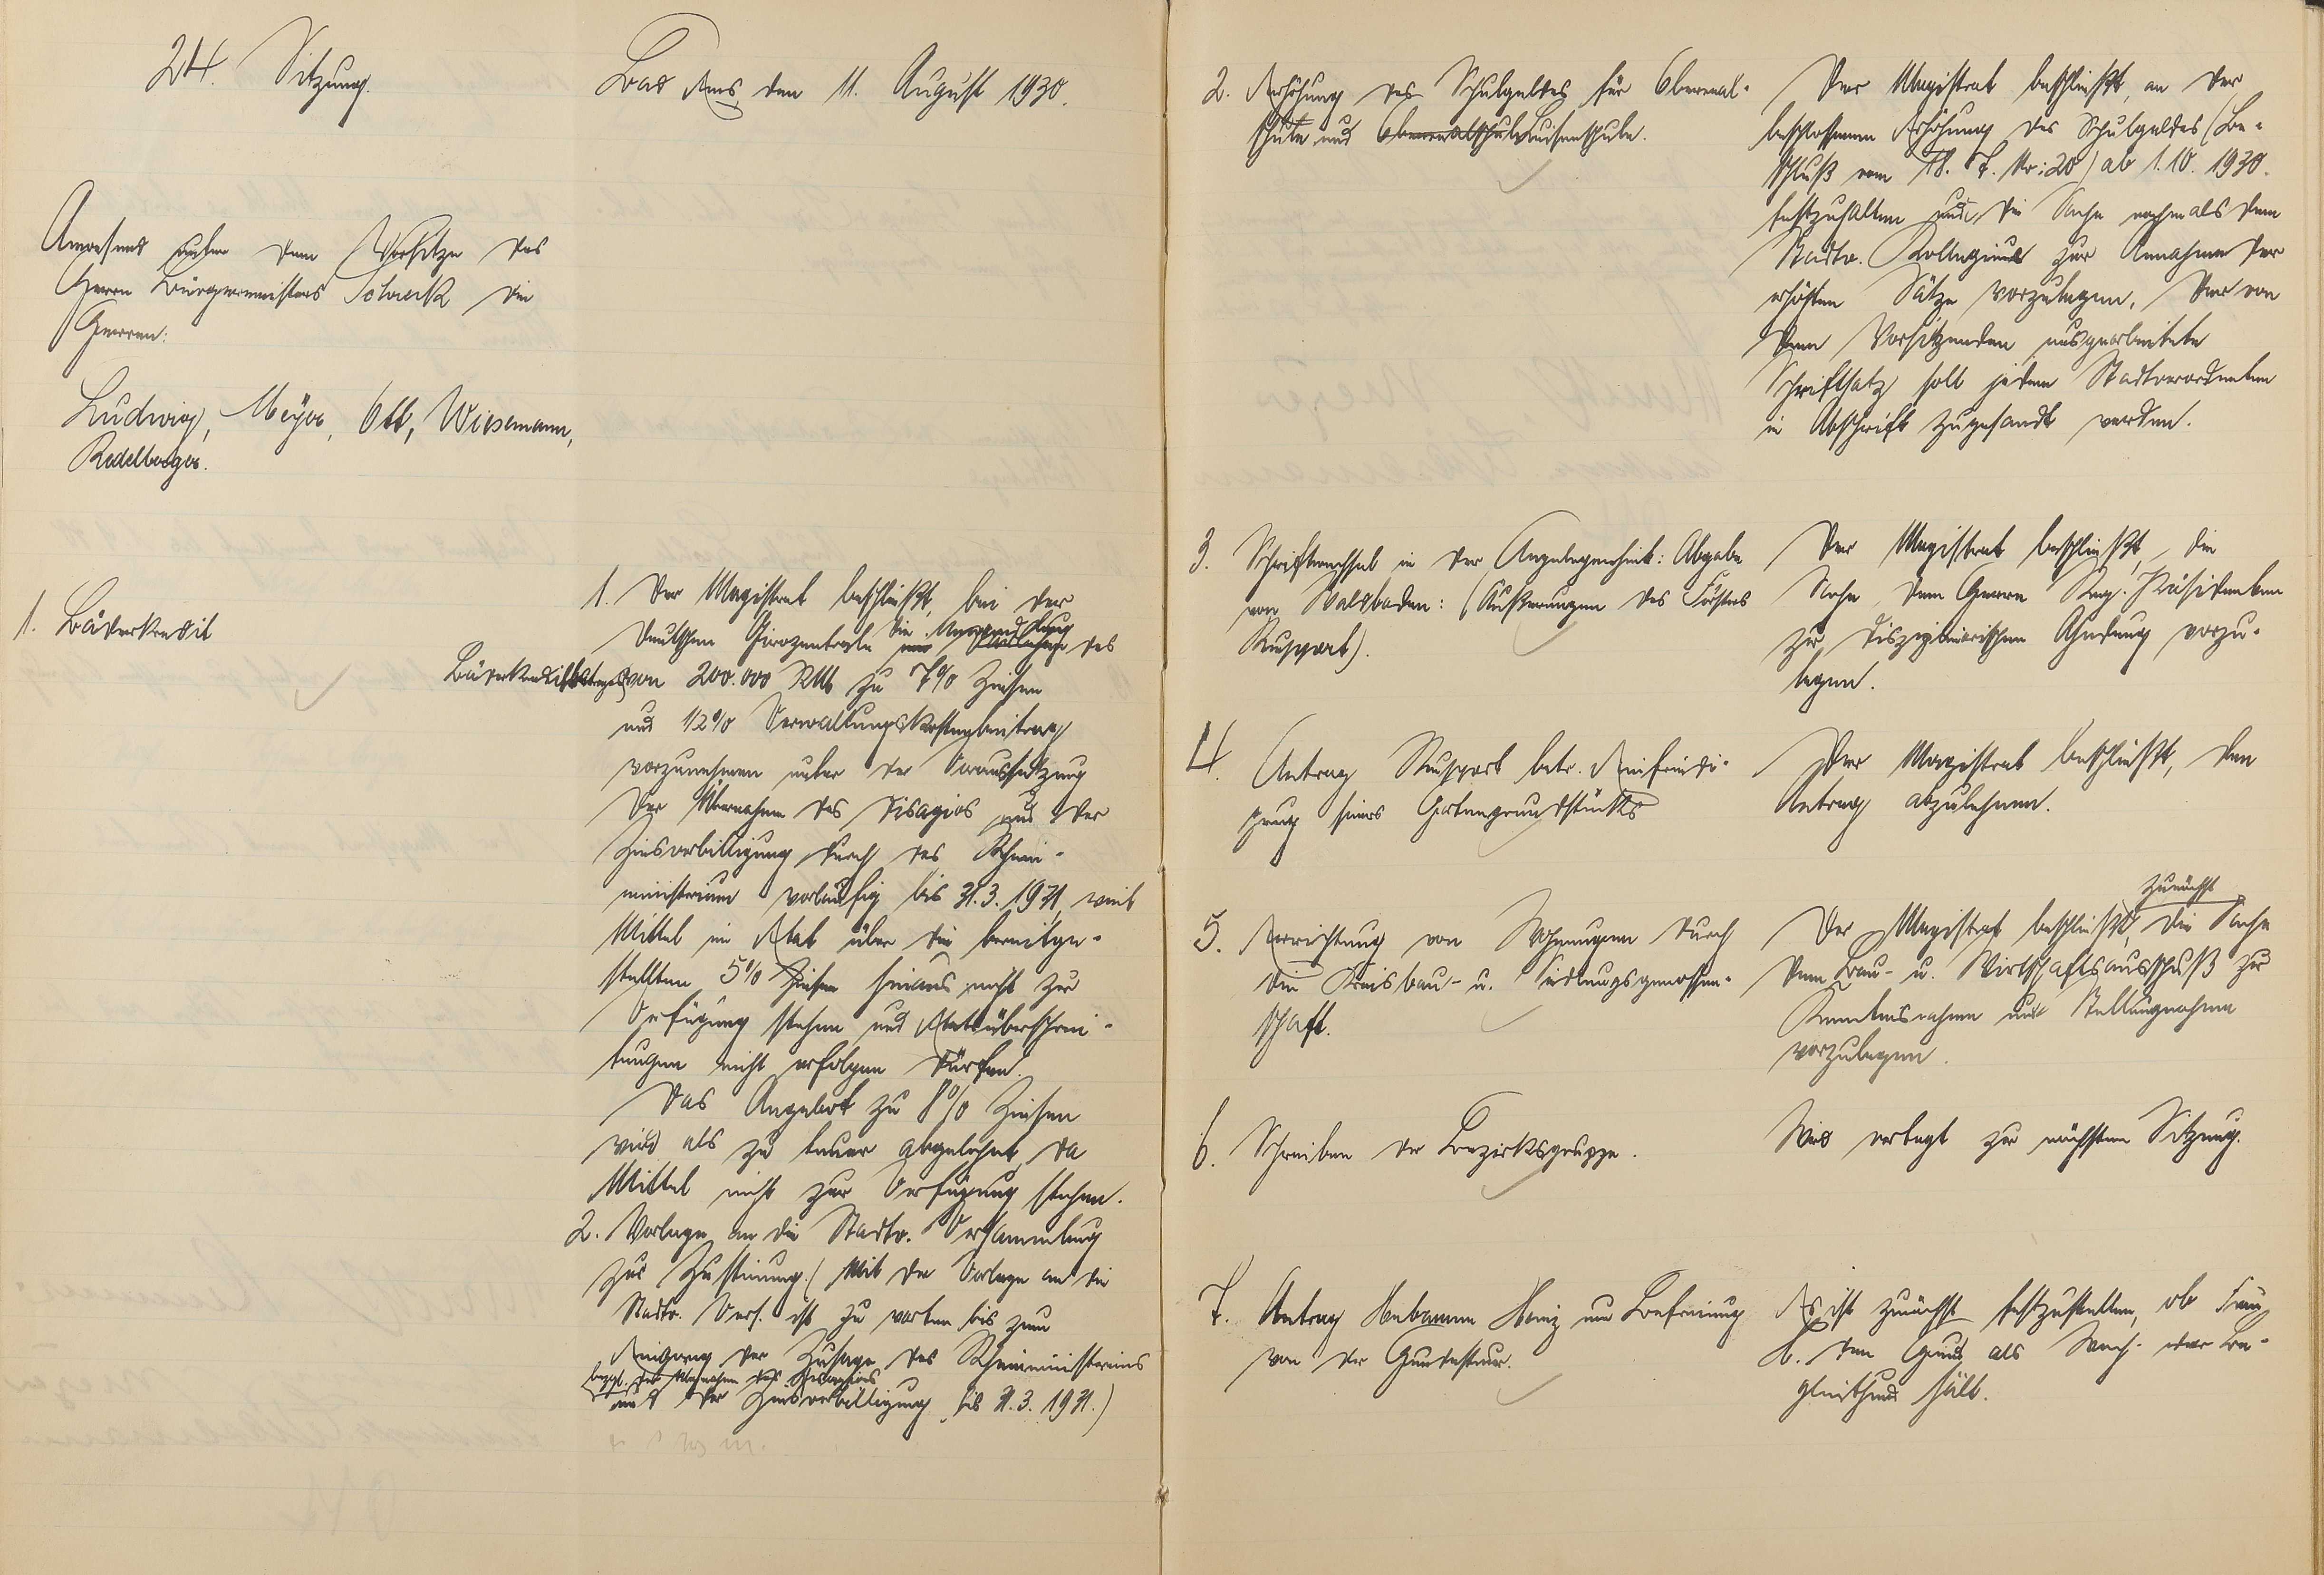 24. Sitzung.
Bad Ems, den 11. August 1930.
Anwesend unter dem Vorsitze des
Herrn Bürgermeisters Schreck die
Herren:
Ludwig, Meyer, Ott, Wiesemann,
Redelberger.
1. Bäderkredit
1. Der Magistrat beschließt, bei der
Deutschen Girozentrale die des
Bäderkredit von 200.000 RM zu 7% Zinsen
und 1/2% Verwaltungskostenbeitrag
vorzunehmen unter der Voraussetzung
der Übernahme des Disagios und der
Zinsverbilligung durch das Rhein-
ministerium vorläufig bis 31.3.1931, weil
Mittel im Etat über die bereitge-
stellten 5% Zinsen hinaus nicht zur
Verfügung stehen und Etatsüberschrei-
tungen nicht erfolgen dürfen.
Das Angebot zu 8% Zinsen
wird als zu teuer abgelehnt, da
Mittel nicht zur Verfügung stehen.
2. Vorlage an die Stadtv. Versammlung
zur Zustimmung. (Mit der Vorlage an die
Stadtv. Vers. ist zu warten bis zum
Eingang der Zusage des Rheinministeriums
bezgl. der Übernahme des Disagios
und der Zinsverbilligung bis 31.3.1931.)
2. Erhöhung des Schulgeldes für Oberreal-
schule und Oberrealschule Luisenschule.
Der Magistrat beschließt, an der
beschlossenen Erhöhung des Schulgeldes (Be-
schluß vom 18. 7. Nr: 20) ab 1.10.1930.
festzuhalten und die Sache nochmals dem
Stadtv. Kollegium zur Annahme der
erhöhten Sätze vorzulegen. Der von
dem Vorsitzenden ausgearbeitete
Schriftsatz soll jedem Stadtverordneten
in Abschrift zugesandt werden.
3. Schriftwechsel in der Angelegenheit: Abgabe
von Waldboden: (Äußerungen des Försters
Ruppert).
Der Magistrat beschließt, die
Sache dem Herrn Reg. Präsidenten
zur disziplinarischen Ahndung vorzu-
legen.
4. Antrag Ruppert betr. Einfriedi-
gung seines Gartengrundstücks
Der Magistrat beschließt, den
Antrag abzulehnen.
5. Errichtung von Wohnungen durch
die Kreisbau- u. Siedlungsgenossen-
schaft.
zunächst
Der Magistrat beschließt, die Sache
dem Bau- u. Wirtschaftsausschuß zur
Kenntnisnahme und Stellungnahme
vorzulegen.
6. Schreiben der Bezirksgruppe.
Wird verlegt zur nächsten Sitzung.
7. Antrag Hebamme um Befreiung
von der Hundesteuer.
Es ist zunächst festzustellen, ob Frau
H. den Hund als Wach- oder Be-
gleithund hält.